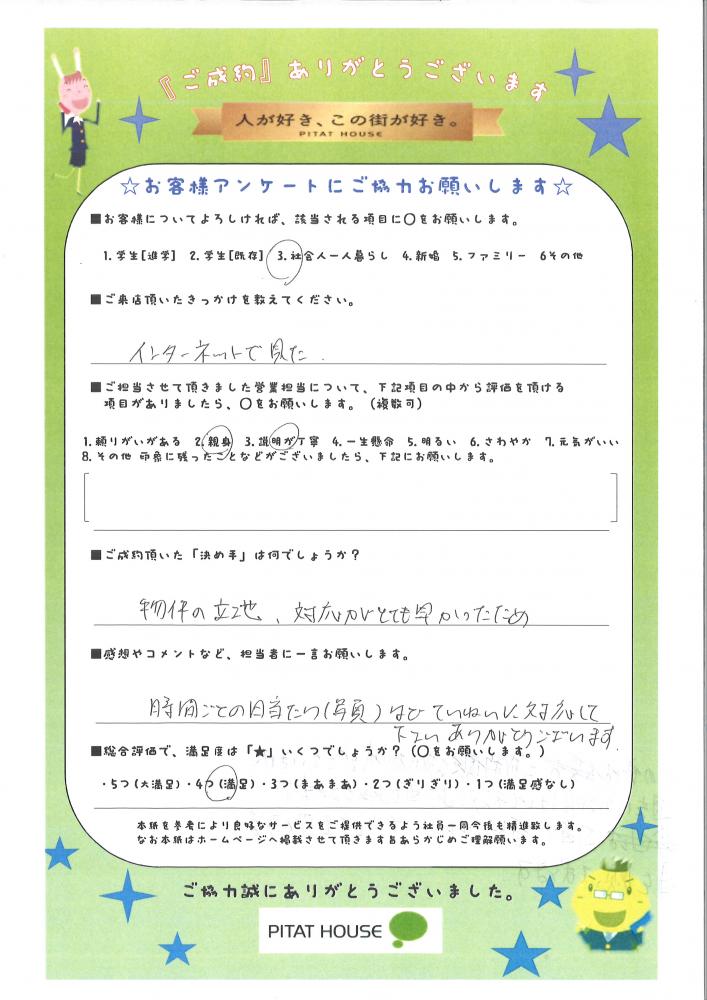 『ご成約』ありがとうございます
人が好き、この街が好き。
PITAT HOUSE
☆お客様アンケートにご協力お願いします☆
■お客様についてよろしければ、該当される項目に〇をお願いします。
1.学生[進学] 2.学生[既存] 3.社会人一人暮らし 4.新婚 5.ファミリー 6その他
■ご来店頂いたきっかけを教えてください。
インターネットで見た.
■ご担当させて頂きました営業担当について、下記項目の中から評価を頂ける
項目がありましたら、〇をお願いします。（複数可）
1.頼りがいがある 2.親身 3.説明が丁寧 4.一生懸命 5.明るい 6.さわやか 7.元気がいい
8.その他 印象に残ったことなどがございましたら、下記にお願いします。
■ご成約頂いた「決め手」は何でしょうか？
物件の立地、対応がとても早かったため
■感想やコメントなど、担当者に一言お願いします。
時間ごとの日当たり(写真)などていねいに対応して
下さいありがとうございます.
■総合評価で、満足度は「★」いくつでしょうか？（〇をお願いします。）
・5つ(大満足)・4つ(満足)・3つ(まあまあ)・2つ(ぎりぎり)・1つ(満足感なし)
本紙を参考により良好なサービスをご提供できるよう社員一同今後も精進致します。
なお本紙はホームページへ掲載させて頂きます旨あらかじめご理解願います。
ご協力誠にありがとうございました。
PITAT HOUSE